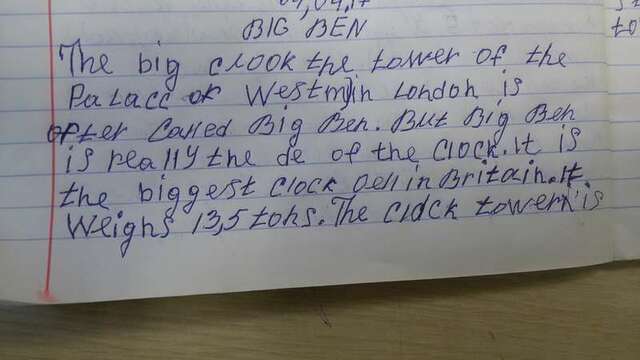 04,04,17
BIG BEN
The big clook the tower of the
Palacc ok Westmjin London is
opter called Big Ben. But Big Ben
is really the de of the clock. It is
the biggest clock oell in Britain. It
weighs 13,5 tons. The clock tower is
to